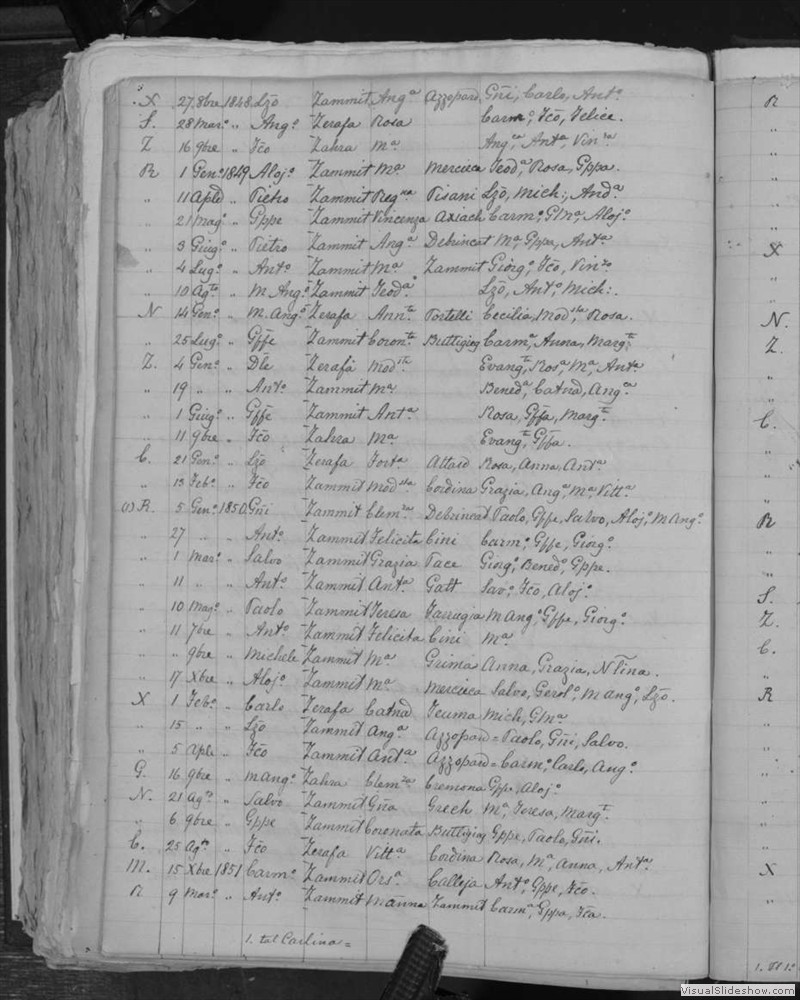 X 27 8bre 1848 Lzō Zammit Ang.ª Azzopard Gñi, Carlo, Ant.º
S. 28 Mar.º „ Ang.º Zerafa Rosa Carm.º, Fčō, Felice.
Z 16 9bre „ Fčō Zahra M.ª Ang.ca, Ant.ª, Vin.za
R 1 Gen.º 1849 Aloj.º Zammit M.ª Mercieca Teod.ª, Rosa, Gppa.
„ 11 Aple „ Pietro Zammit Reg.na Pisani Lzō, Mich:, And.ª
„ 21 Mag.º „ Gppe Zammit Vincenza Axiach Carm.º, G M.ª, Aloj.º
„ 3 Giug.º „ Pietro Zammit Ang.ª Debrincat M.ª, Gppa, Ant.ª
„ 4 Lug.º „ Ant.º Zammit M.ª Zammit Giorg.º, Fčō, Vin.zo
„ 10 Ag.to „ M. Ang.º Zammit Teod.ª Lzō, Ant.º, Mich:.
N 14 Gen.º „ M. Ang.º Zerafa Ann.ta Portelli Cecilia, Mod.sta, Rosa.
„ 25 Lug.º „ Gffe Zammit Coron.ta Buttigieg Carm.ª, Anna, Marg.ta
Z. 4 Gen.º „ Dle Zerafa Mod.sta Evang.ta, Ros.ª, M.ª, Ant.ª
„ 19 „ „ Ant.º Zammit M.ª Bened.ª, Catnā, Ang.ca
„ 1 Giug.º „ Gffe Zammit Ant.ª Rosa, Gffa, Marg.ta
„ 11 9bre „ Fčō Zahra M.ª Evang.ta, Gffa.
C. 21 Gen.º „ Lzō Zerafa Fort.ª Attard Rosa, Anna, Ant.ª
„ 13 Feb.º „ Fčō Zammit Mod.sta Cordina Grazia, Ang.ª, M.ª, Vitt.ª
(1) R. 5 Gen.º 1850 Gñi Zammit Clem.za Debrincat Paolo, Gffe, Salvo, Aloj.º, M Ang.º
„ 27 „ „ Ant.º Zammit Felicita Cini Carm.º, Gffe, Giorg.º
„ 1 Mar.º „ Salvo Zammit Grazia Pace Giorg.º, Bened.º, Gppe.
„ 11 „ „ Ant.º Zammit Ant.ª Gatt Sav.º, Fčō, Aloj.º
„ 10 Mag.º „ Paolo Zammit Teresa Farrugia M Ang.º, Gffe, Giorg.º
„ 11 7bre „ Ant.º Zammit Felicita Cini M.ª
„ „ 9bre „ Michele Zammit M.ª Grima Anna, Grazia, N
„ 17 Xbre „ Aloj.º Zammit M.ª Mercieca Salvo, Gerol.º, M Ang.º, Lzō.
X 1 Feb.º „ Carlo Zerafa Catnā Teuma Mich, G M.ª
„ 15 „ „ Lzō Zammit Ang.ª Azzopard = Paolo, Gñi, Salvo.
„ 5 Aple „ Fčō Zammit Ant.ª Azzopard = Carm.º, Carlo, Ang.º
G. 16 9bre „ M Ang.º Zahra Clem.za Cremona Gppe, Aloj.º
N. 21 Ag.to „ Salvo Zammit Gña Grech M.ª, Teresa, Marg.ta
„ 6 9bre „ Gppe Zammit Coronata Buttigieg Gppe, Paolo, Gñi.
C. 25 Ag.to „ Fčō Zerafa Vitt.ª Cordina Rosa, M.ª, Anna, Ant.ª
M. 15 Xbre 1851 Carm.º Zammit Ors.ª Calleja Ant.º, Gppe, Fčō.
R 9 Mar.º „ Ant.º Zammit Manna Zammit Carm.ª, Gppa, Fča.
1. tal Carlina =
R
„
„
„
„
„
X
„
„
N.
Z.
„
„
C.
„
„
„
R
„
„
S.
Z.
C.
„
R
„
„
„
„
„
„
X
„
„
VisualSlideshow.com